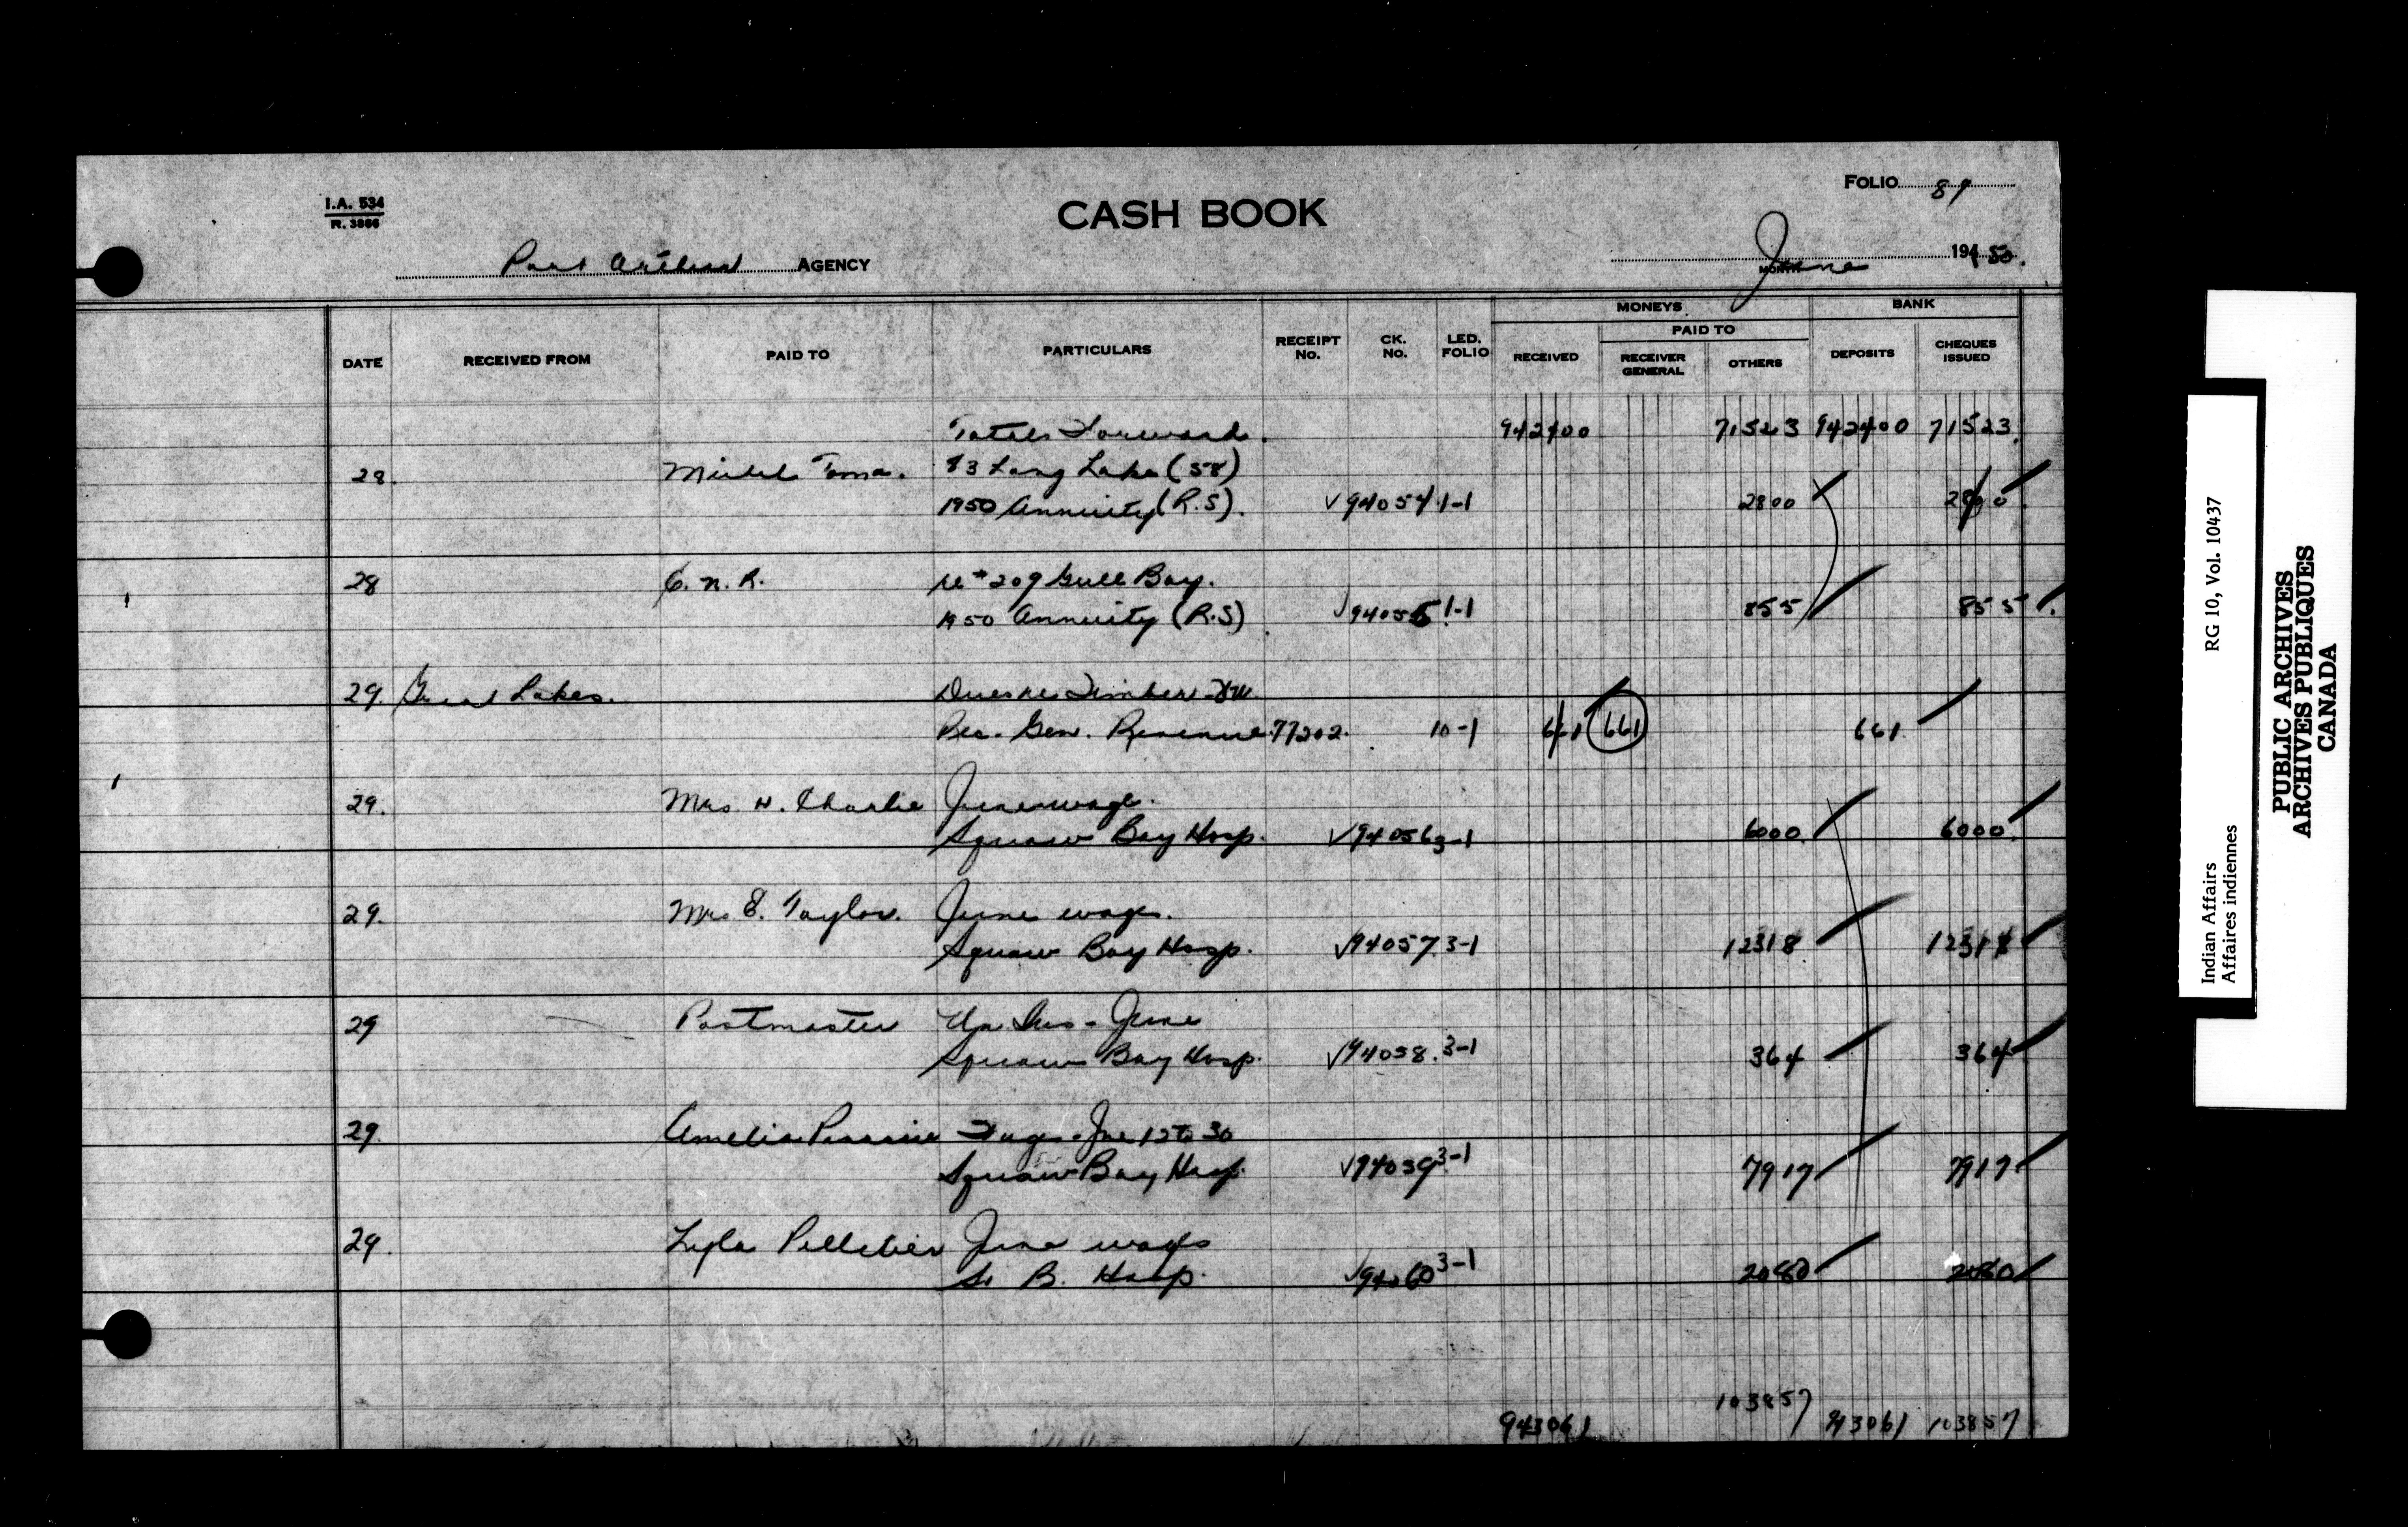 I.A. 534
R. 3866
CASH BOOK
FOLIO 81
Port Arthur AGENCY
June MONTH 194 50.
DATE RECEIVED FROM PAID TO PARTICULARS RECEIPT No. CK. No. LED. FOLIO MONEYS RECEIVED PAID TO RECEIVER GENERAL OTHERS BANK DEPOSITS CHEQUES ISSUED
Totals Forward. 942400 71523 942400 71523
28. Michel Toma. 83 Long Lake (58)
1950 Annuity (R.S). 94054 1-1 2800 2800
28 C.N.R. re #209 Gull Bay.
1950 Annuity (R.S) 94055 1-1 855 855
29. Great Lakes. Dues re Timber
Rec. Gen. Revenue 77202 10-1 661 661 661
29. Mrs N. Charlie June wage.
Squaw Bay Hosp. 94056 3-1 6000 6000
29. Mrs E. Taylor. June wages.
Squaw Bay Hosp. 94057 3-1 12318 12318
29 Postmaster Un Ins - June
Squaw Bay Hosp. 94058. 3-1 364 364
29. Amelia June 12 to 30
Squaw Bay Hosp 94059 3-1 7917 7917
29. Lyla Pelletier June wages
S. B. Hosp. 94060 3-1 2080 2080
943061 103857 943061 103857
Indian Affairs RG 10, Vol. 10437
Affaires indiennes
PUBLIC ARCHIVES
ARCHIVES PUBLIQUES
CANADA